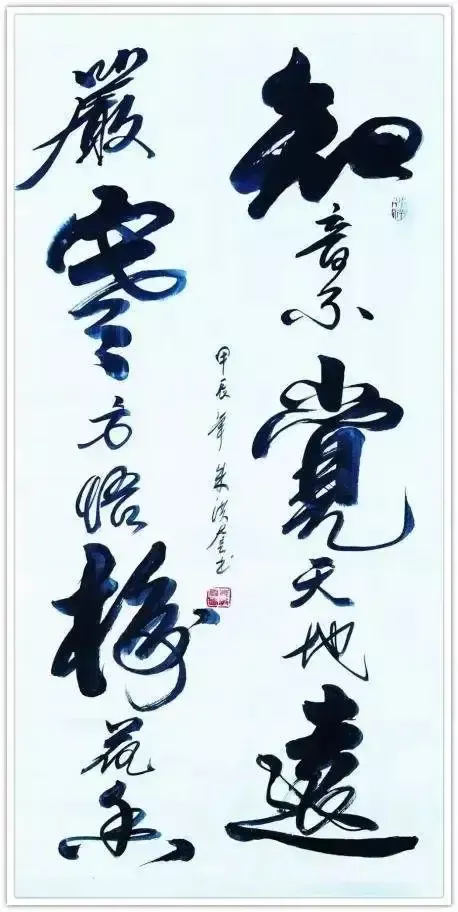 知音不觉天地遠
嚴寒方悟梅花香
甲辰年朱洪書